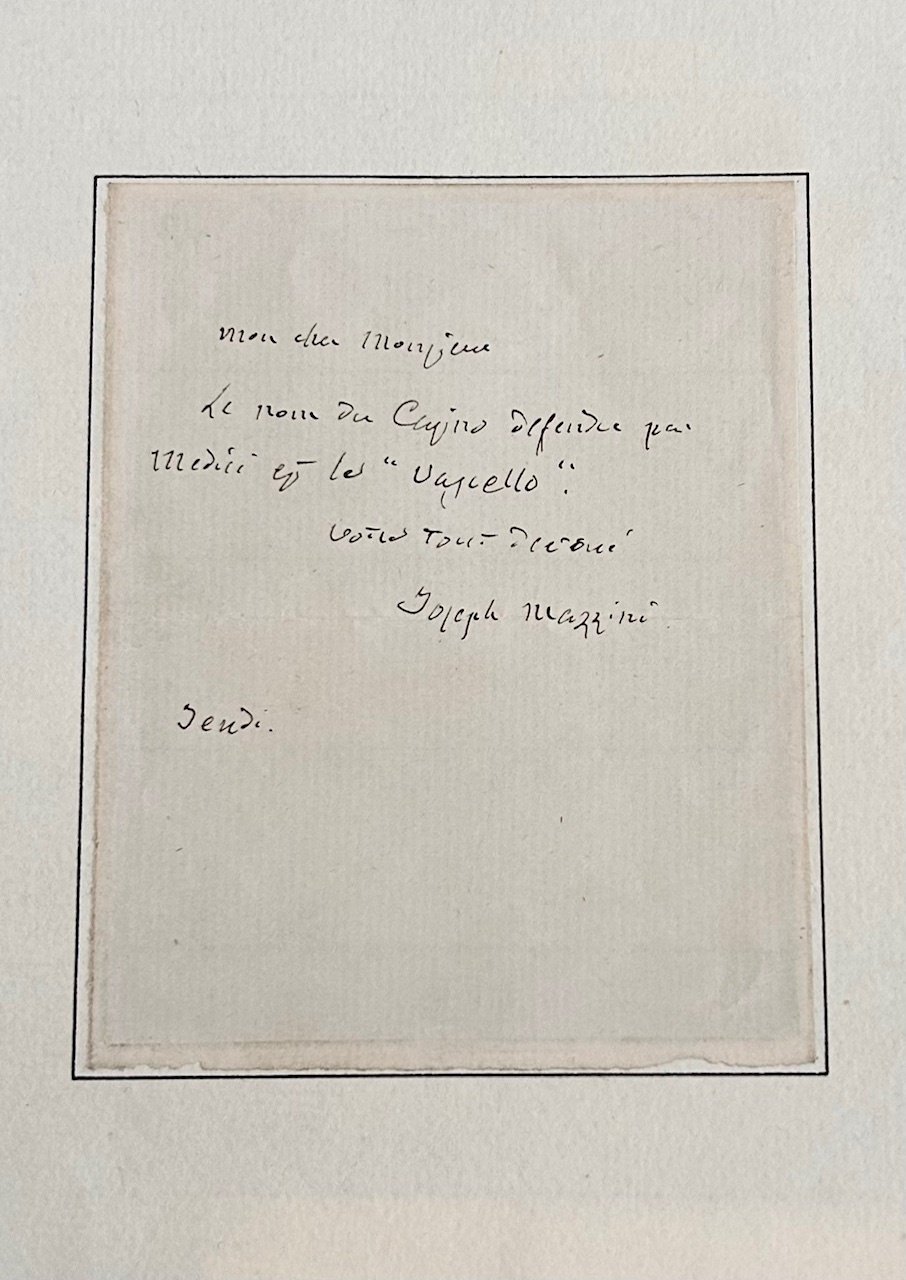 Mon cher Monsieur
Le nom du Casino defendu par
Medici est le "Vascello".
Votre tout dévoué
Joseph Mazzini
Jeudi.